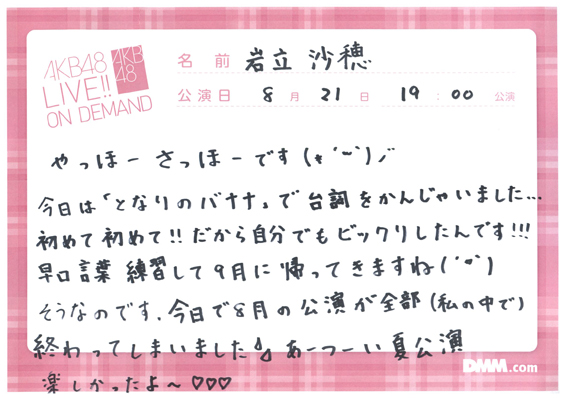 AKB48
LIVE!!
ON DEMAND
AKB
48
名前 岩立 沙穂
公演日 8月 21日 19:00 公演
やっほー さっほーです(*´︶`)ノ
今日は「となりのバナナ」で台詞をかんじゃいました...
初めて初めて!!だから自分でもビックリしたんです!!!
早口言葉 練習して9月に帰ってきますね(´˘`)
そうなのです、今日で8月の公演が全部(私の中で)
終わってしまいました あーつーい夏公演
楽しかったよ〜♡♡♡
DMM.com